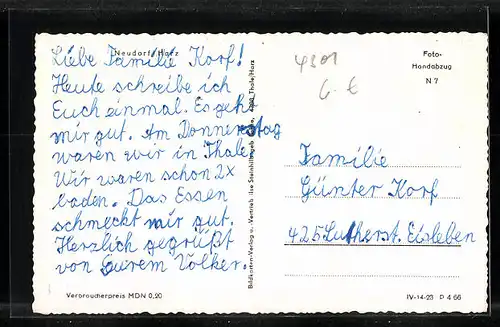 Neudorf/Harz
Liebe Familie Korf!
Heute schreibe ich
Euch einmal. Es geht
mir gut. Am Donnerstag
waren wir in Thale.
Wir waren schon 2x
baden. Das Essen
schmeckt mir gut.
Herzlich gegrüßt
von Eurem Volker.
Verbraucherpreis MDN 0,20
Bildkarten-Verlag u. Vertrieb Ilse Thale/Harz
4301
6.- €
Foto-
Handabzug
N 7
Familie
Günter Korf
425 Lutherst. Eisleben
IV-14-23 P 4 66